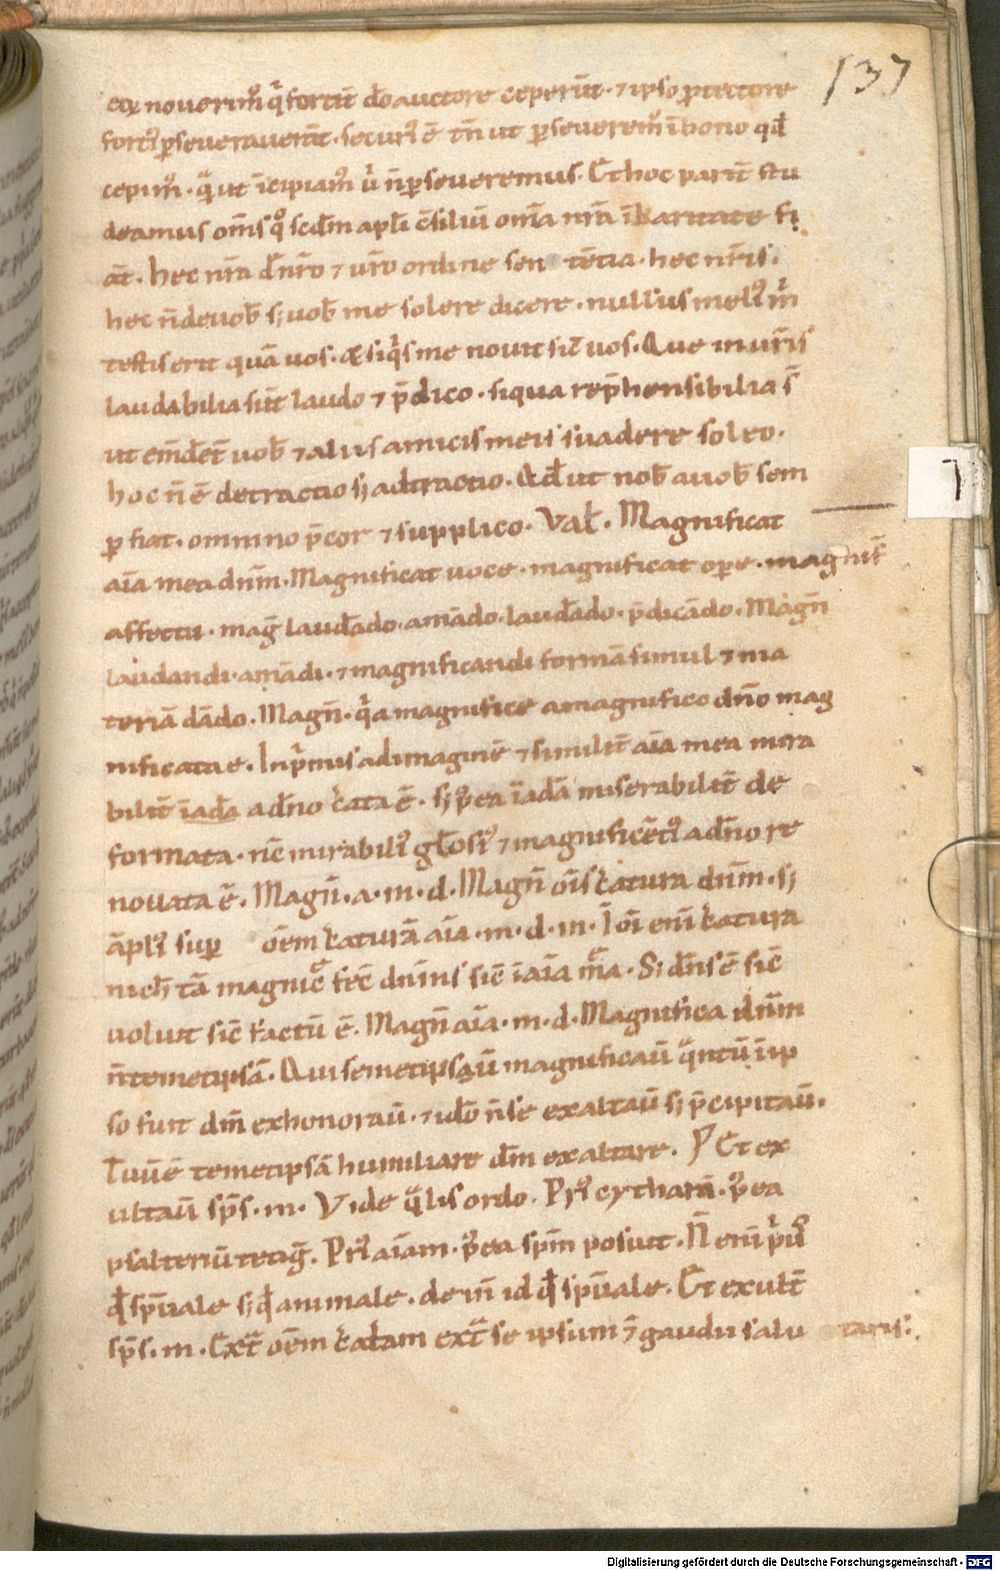 137
eoꝝ noverim᷒ q̇ fortit̄ do auctore ceperūt · ⁊ ipso ꝓtectore
forti᷒ ꝑseveraverūt · securi᷒ ē tn̄ ut ꝑseverem᷒ ī bono qđ
cepim᷒ · ut īcipiam᷒ n̄ ꝑseveremus · Et hoc parit̄ stu
deamus om̄s scđm apłi c̄siliū om̄ia nr̄a ī karitate fi
āt · hec nr̄a đ nr̄o ⁊ vr̄o ordine sen tētia · hec nr̄is ·
hec n̄ de vob̄ sꝫ vob̄ me solere dicere · null᷒ us meli᷒ m̍
testis erit quā vos · & siq̍s me novit sic̄ vos · Que in vr̄is
laudabilia sūt laudo ⁊ p̄dico · siqua rep̄hensibilia s̄
ut em̄det̄ vob̄ ⁊ aliis amicis meis suadere soleo ·
hoc n̄ ē detractio sꝫ adtractio · Qđ ut nob̄ a vob̄ sem
ꝑ fiat · omnino p̄cor ⁊ supplico · Val̄ · Magnificat
aīa mea dn̄m · Magnificat voce · magnificat oꝑe · magnif̄
affectu · mag̅ laudādo · amādo · laudādo · p̄dicādo · Magn̄
laudandi · amādi · ⁊ magnificandi formā simul ⁊ ma
teriā dādo · Magn̄ · q̍a magnifice a magnifico dn̄o mag
nificata ē · In p̍mis ad imaginē ⁊ similit̄ aīa mea mira
bilit̄ ī adā a dn̄o c̍ata ē · sꝫ p᷒ea ī adā miserabilit̄ de
formata · nc̄ mirabili᷒ gl̄osi᷒ ⁊ magnificēti᷒ a dn̄o re
novata ē · Magn̄ · a · m · d · Magn̄ oīs c̍atura dn̄m · sꝫ
āpli᷒ suꝑ oēm c̍aturā aīa · m · d · m · I oī enī c̍atura
tā magnificē fec̄ dn̄m sic̄ ī aīa m̄a · Si dn̄s ē sic̄
voluit sic̄ factū ē · Magn̄ aīa · m · d · Magnifica dn̄m
n̄ temetipsā · Qui semetipsū magnificav̄ q̄ntū ī ip
so fuit dn̄m exhonorav̄ · ⁊ ido n̄ se exaltav̄ sꝫ p̄cipitav̄ ·
temetipsā humiliare dn̄m exaltare · Et ex
ultav̄ sp̄s · m · Vide q̄lis ordo · Pri᷒ cytharā · p᷒ea
psalteriū tetig̅ · Pri᷒ aīam · p᷒ea sp̄m posuit · N̄ enī p̍us
qđ sp̄uale sꝫ qđ animale · dein̄ id qđ sp̄uale · Et exult̄
sp̄s · m · Ext̄ oēm c̍atam ext̄ se ipsum ī gaudii salu taris ·
1
Digitalisierung gefördert durch die Deutsche Forschungsgemeinschaft - DFG